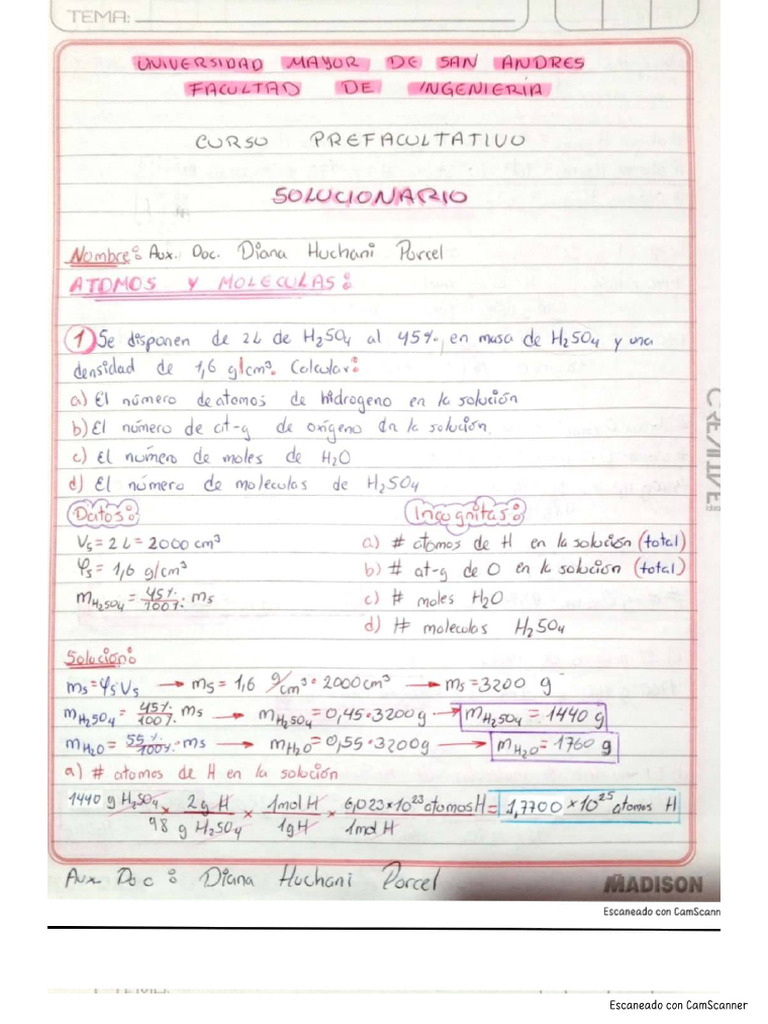 TEMA:
UNIVERSIDAD MAYOR DE SAN ANDRES
FACULTAD DE INGENIERIA
CURSO PREFACULTATIVO
SOLUCIONARIO
Nombre: Aux. Doc. Diana Huchani Porcel
ATOMOS Y MOLECULAS:
1) Se disponen de 2L de H₂SO₄ al 45%, en masa de H₂SO₄ y una
densidad de 1,6 g/cm³. Calcular:
a) El número de atomos de hidrogeno en la solución
b) El número de at-g de oxígeno en la solución.
c) El número de moles de H₂O
d) El número de moleculas de H₂SO₄
Datos: Incognitas:
Vs = 2L = 2000 cm³ a) # atomos de H en la solución (total)
φs = 1,6 g/cm³ b) # at-g de O en la solución (total)
mH₂SO₄ = 45%/100% · ms c) # moles H₂O
d) # moleculas H₂SO₄
Solución:
ms = φs Vs → ms = 1,6 g/cm³ · 2000 cm³ → ms = 3200 g
mH₂SO₄ = 45%/100% · ms → mH₂SO₄ = 0,45 · 3200 g → mH₂SO₄ = 1440 g
mH₂O = 55%/100% · ms → mH₂O = 0,55 · 3200g → mH₂O = 1760 g
a) # atomos de H en la solución
1440 g H₂SO₄ × 2g H/98 g H₂SO₄ × 1mol H/1gH × 6,023×10²³ atomos H/1mol H = 1,7700 × 10²⁵ atomos H
Aux Doc: Diana Huchani Porcel
MADISON
Escaneado con CamScann
Escaneado con CamScanner